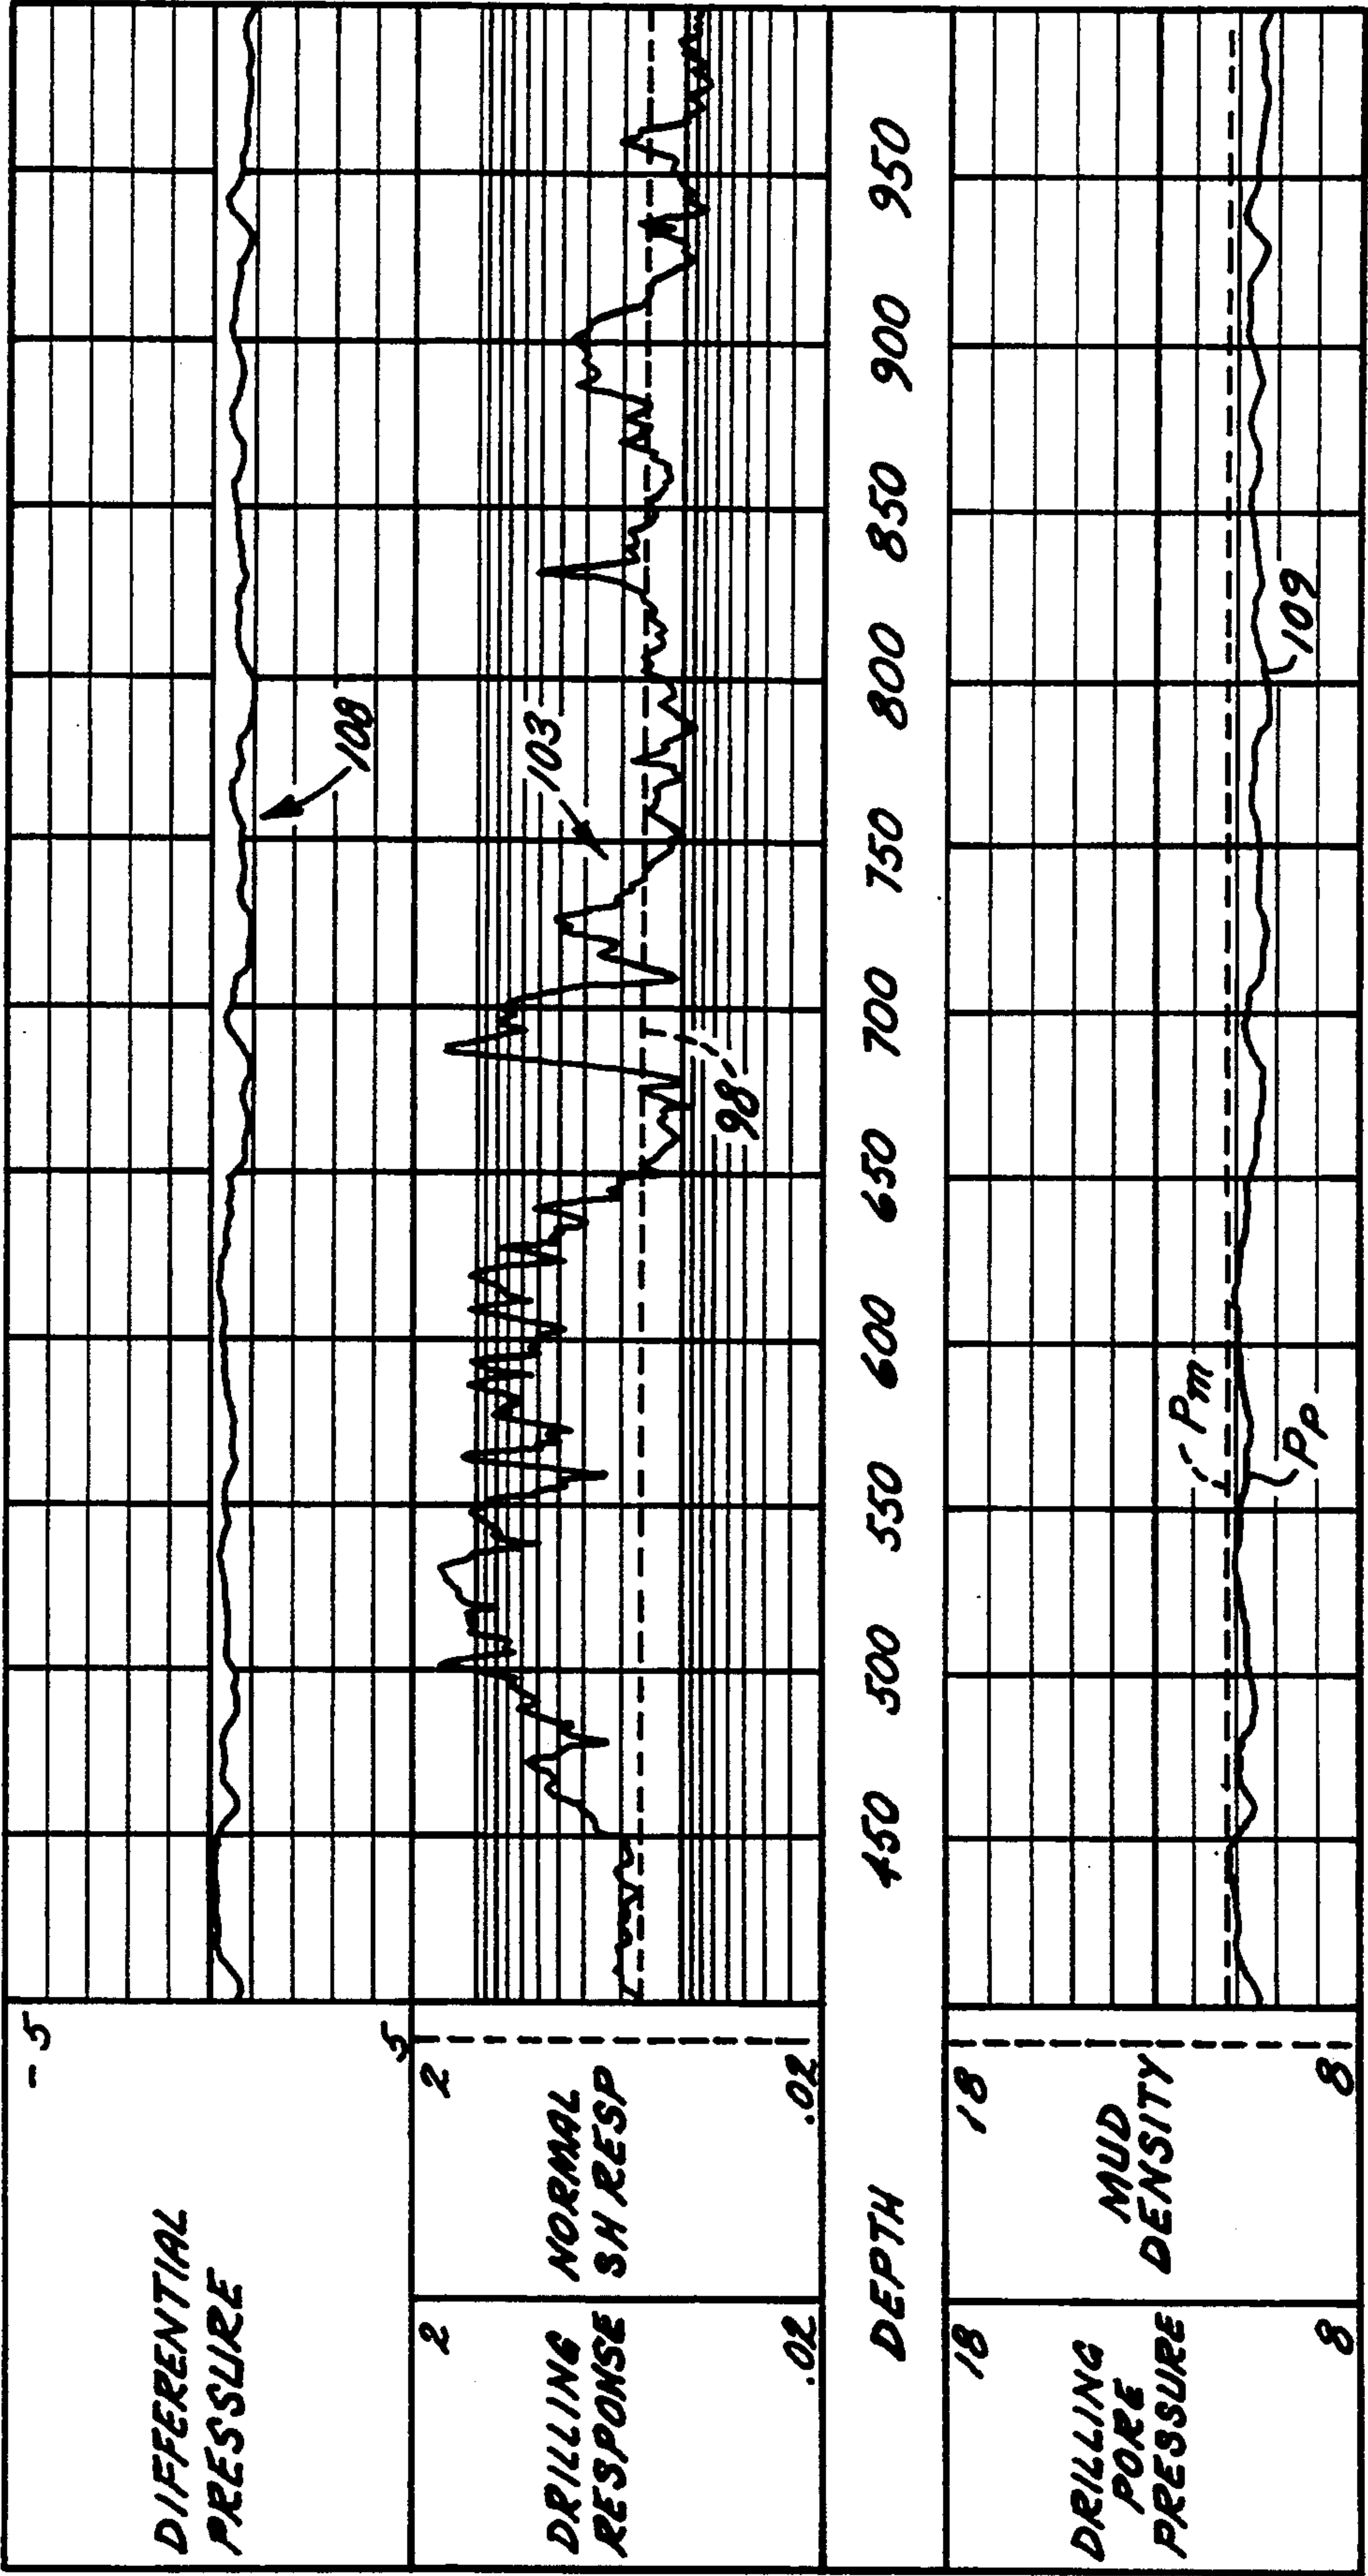 DIFFERENTIAL
PRESSURE
-5
5
108
DRILLING
RESPONSE
2
.02
NORMAL
SH RESP
2
.02
103
98
DEPTH
450 500 550 600 650 700 750 800 850 900 950
DRILLING
PORE
PRESSURE
18
8
MUD
DENSITY
18
8
Pm
Pp
109